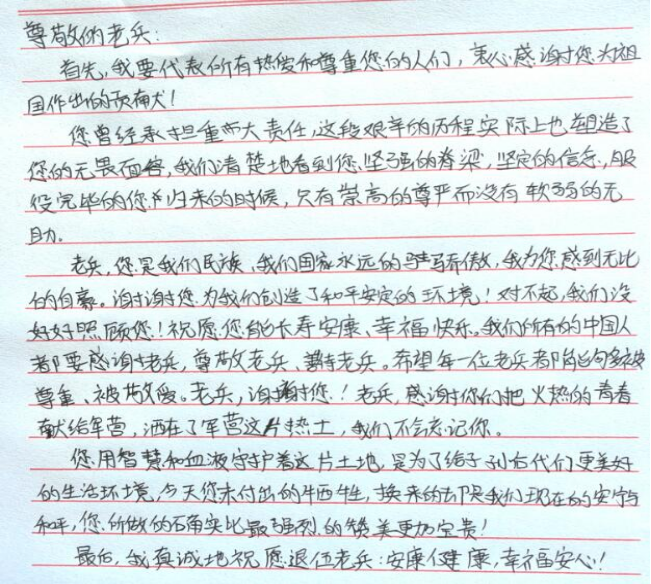 尊敬的老兵:
首先,我要代表所有热爱和尊重您的人们,衷心感谢您为祖
国作出的贡献!
您曾经承担重而大责任,这段艰辛的历程实际上也塑造了
您的无畏面容,我们清楚地看到您坚强的脊梁,坚定的信念,服
役完毕的您归来的时候,只有崇高的尊严而没有软弱的无
助。
老兵,您是我们民族、我们国家永远的骄傲,我为您感到无比
的自豪。谢谢您为我们创造了和平安定的环境!对不起,我们没
好好照顾您!祝愿您能长寿安康、幸福快乐。我们所有的中国人
都要感谢老兵,尊敬老兵、善待老兵。希望每一位老兵都能够被
尊重、被敬爱。老兵,谢谢您!老兵,感谢你们把火热的青春
献给军营,洒在了军营这片热土,我们不会忘记你。
您用智慧和血液守护着这片土地,是为了给子孙后代们更美好
的生活环境,今天您未付出的牺牲,换来的却是我们现在的安宁与
和平,您所做的确实比最强烈的赞美更加宝贵!
最后,我真诚地祝愿退伍老兵:安康健康,幸福安心!